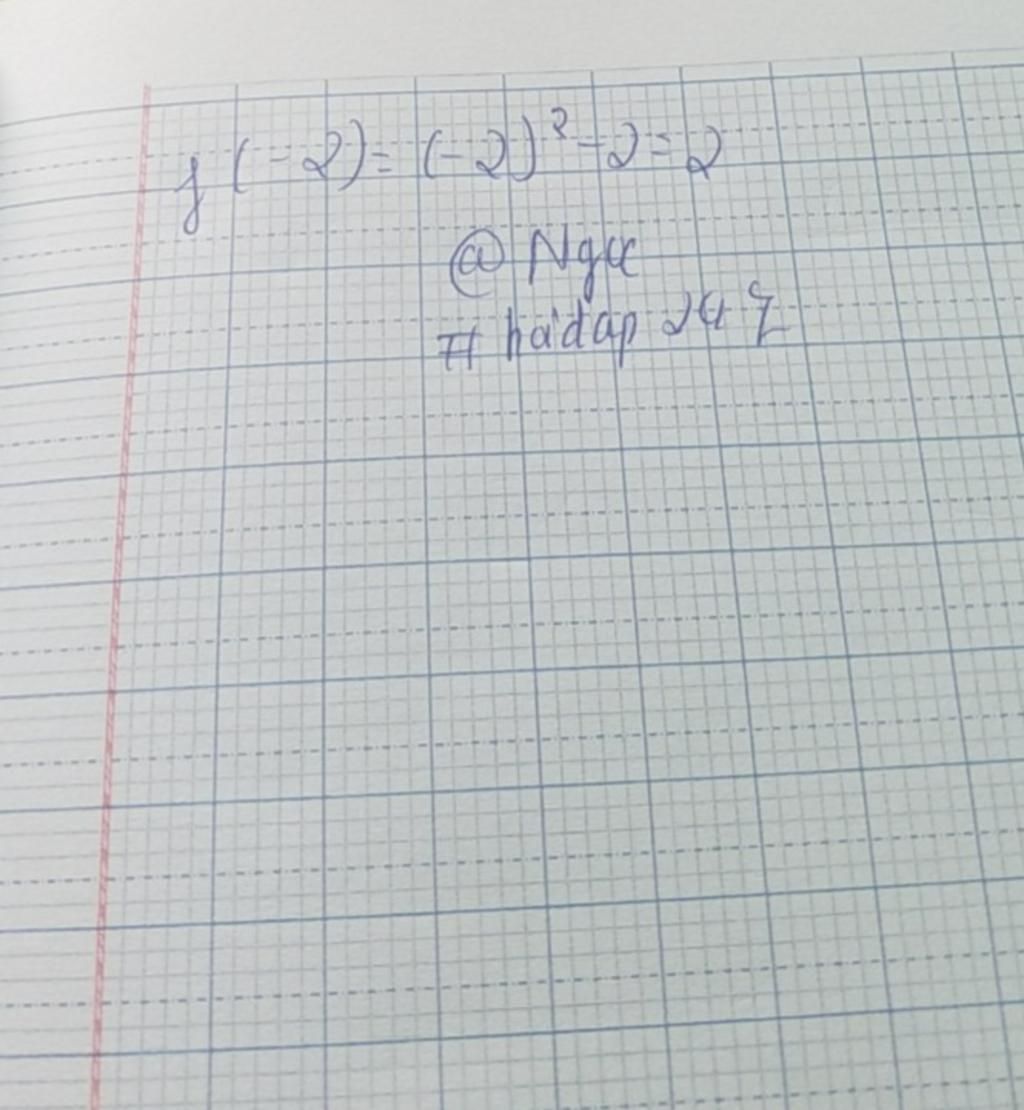 f(-2)=(-2)²-2=2
@ Ngọc
# hỏidap 247